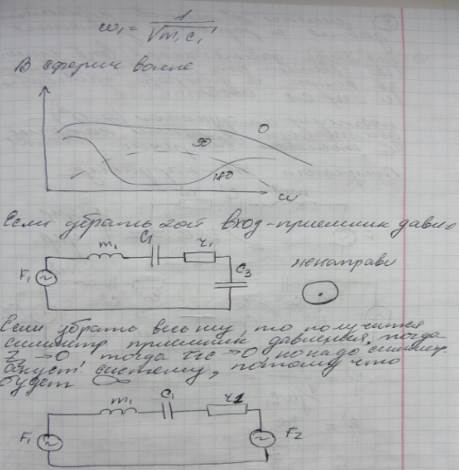 ω₁ = 1/√m₁c₁
В сферич волне
0
90
180
ω
Если убрать 2ой вход-приемник давле
m₁ c₁ r₁
F₁ c₃
ненаправл
Если убрать то получится
приемник давления, тогда
Z → 0, тогда → 0 но надо
систему, потому что
будет ∞
m₁ c₁ r₁
F₁ F₂